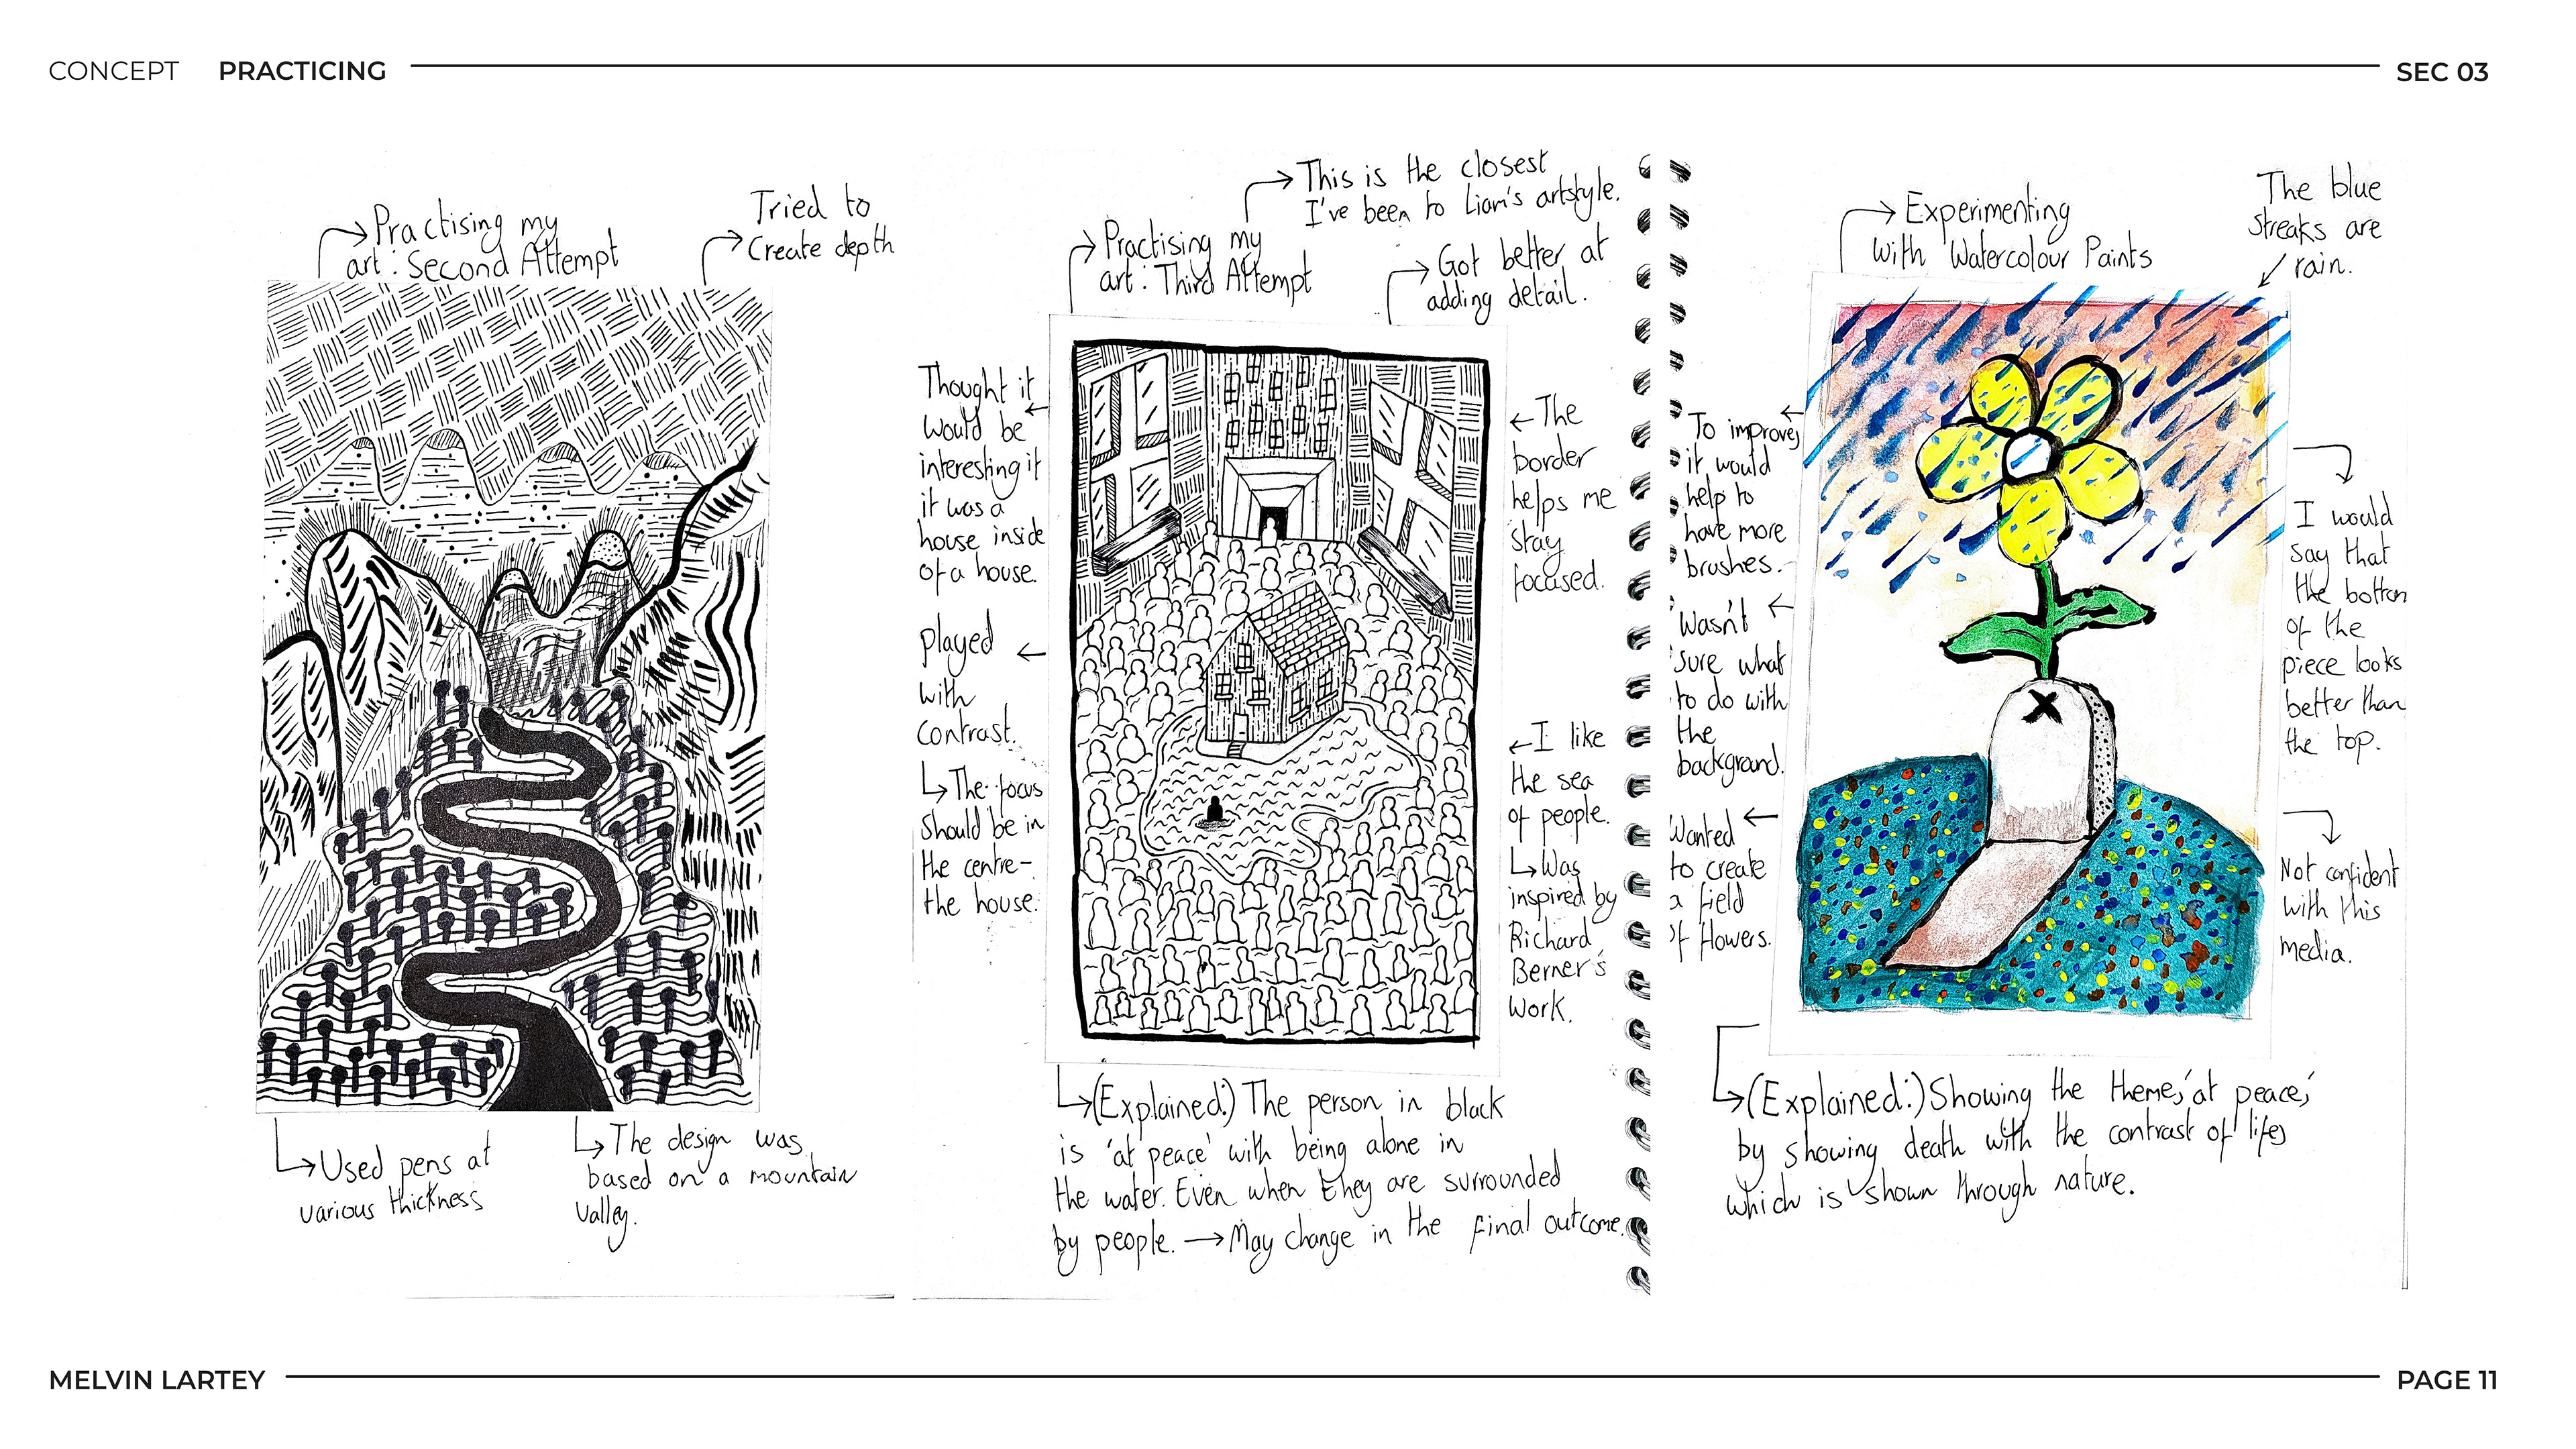 CONCEPT PRACTICING
SEC 03
Practising my
art: Second Attempt
Tried to
Create depth
Used pens at
various thickness
The design was
based on a mountain
valley.
Practising my
art: Third Attempt
This is the closest
I've been to Liam's artstyle.
Got better at
adding detail.
Thought it
would be
interesting if
it was a
house inside
of a house.
played
with
contrast.
The focus
should be in
the centre-
the house.
The
border
helps me
stay
focused.
I like
the sea
of people.
Was
inspired by
Richard
Berner's
work.
(Explained:) The person in black
is 'at peace' with being alone in
the water. Even when they are surrounded
by people. → May change in the final outcome.
Experimenting
with Watercolour Paints
The blue
streaks are
rain.
To improve,
it would
help to
have more
brushes.
Wasn't
sure what
to do with
the
background.
Wanted
to create
a field
of flowers.
I would
say that
the bottom
of the
piece looks
better than
the top.
Not confident
with this
media.
(Explained:) Showing the theme, 'at peace,'
by showing death with the contrast of life,
which is shown through nature.
MELVIN LARTEY
PAGE 11